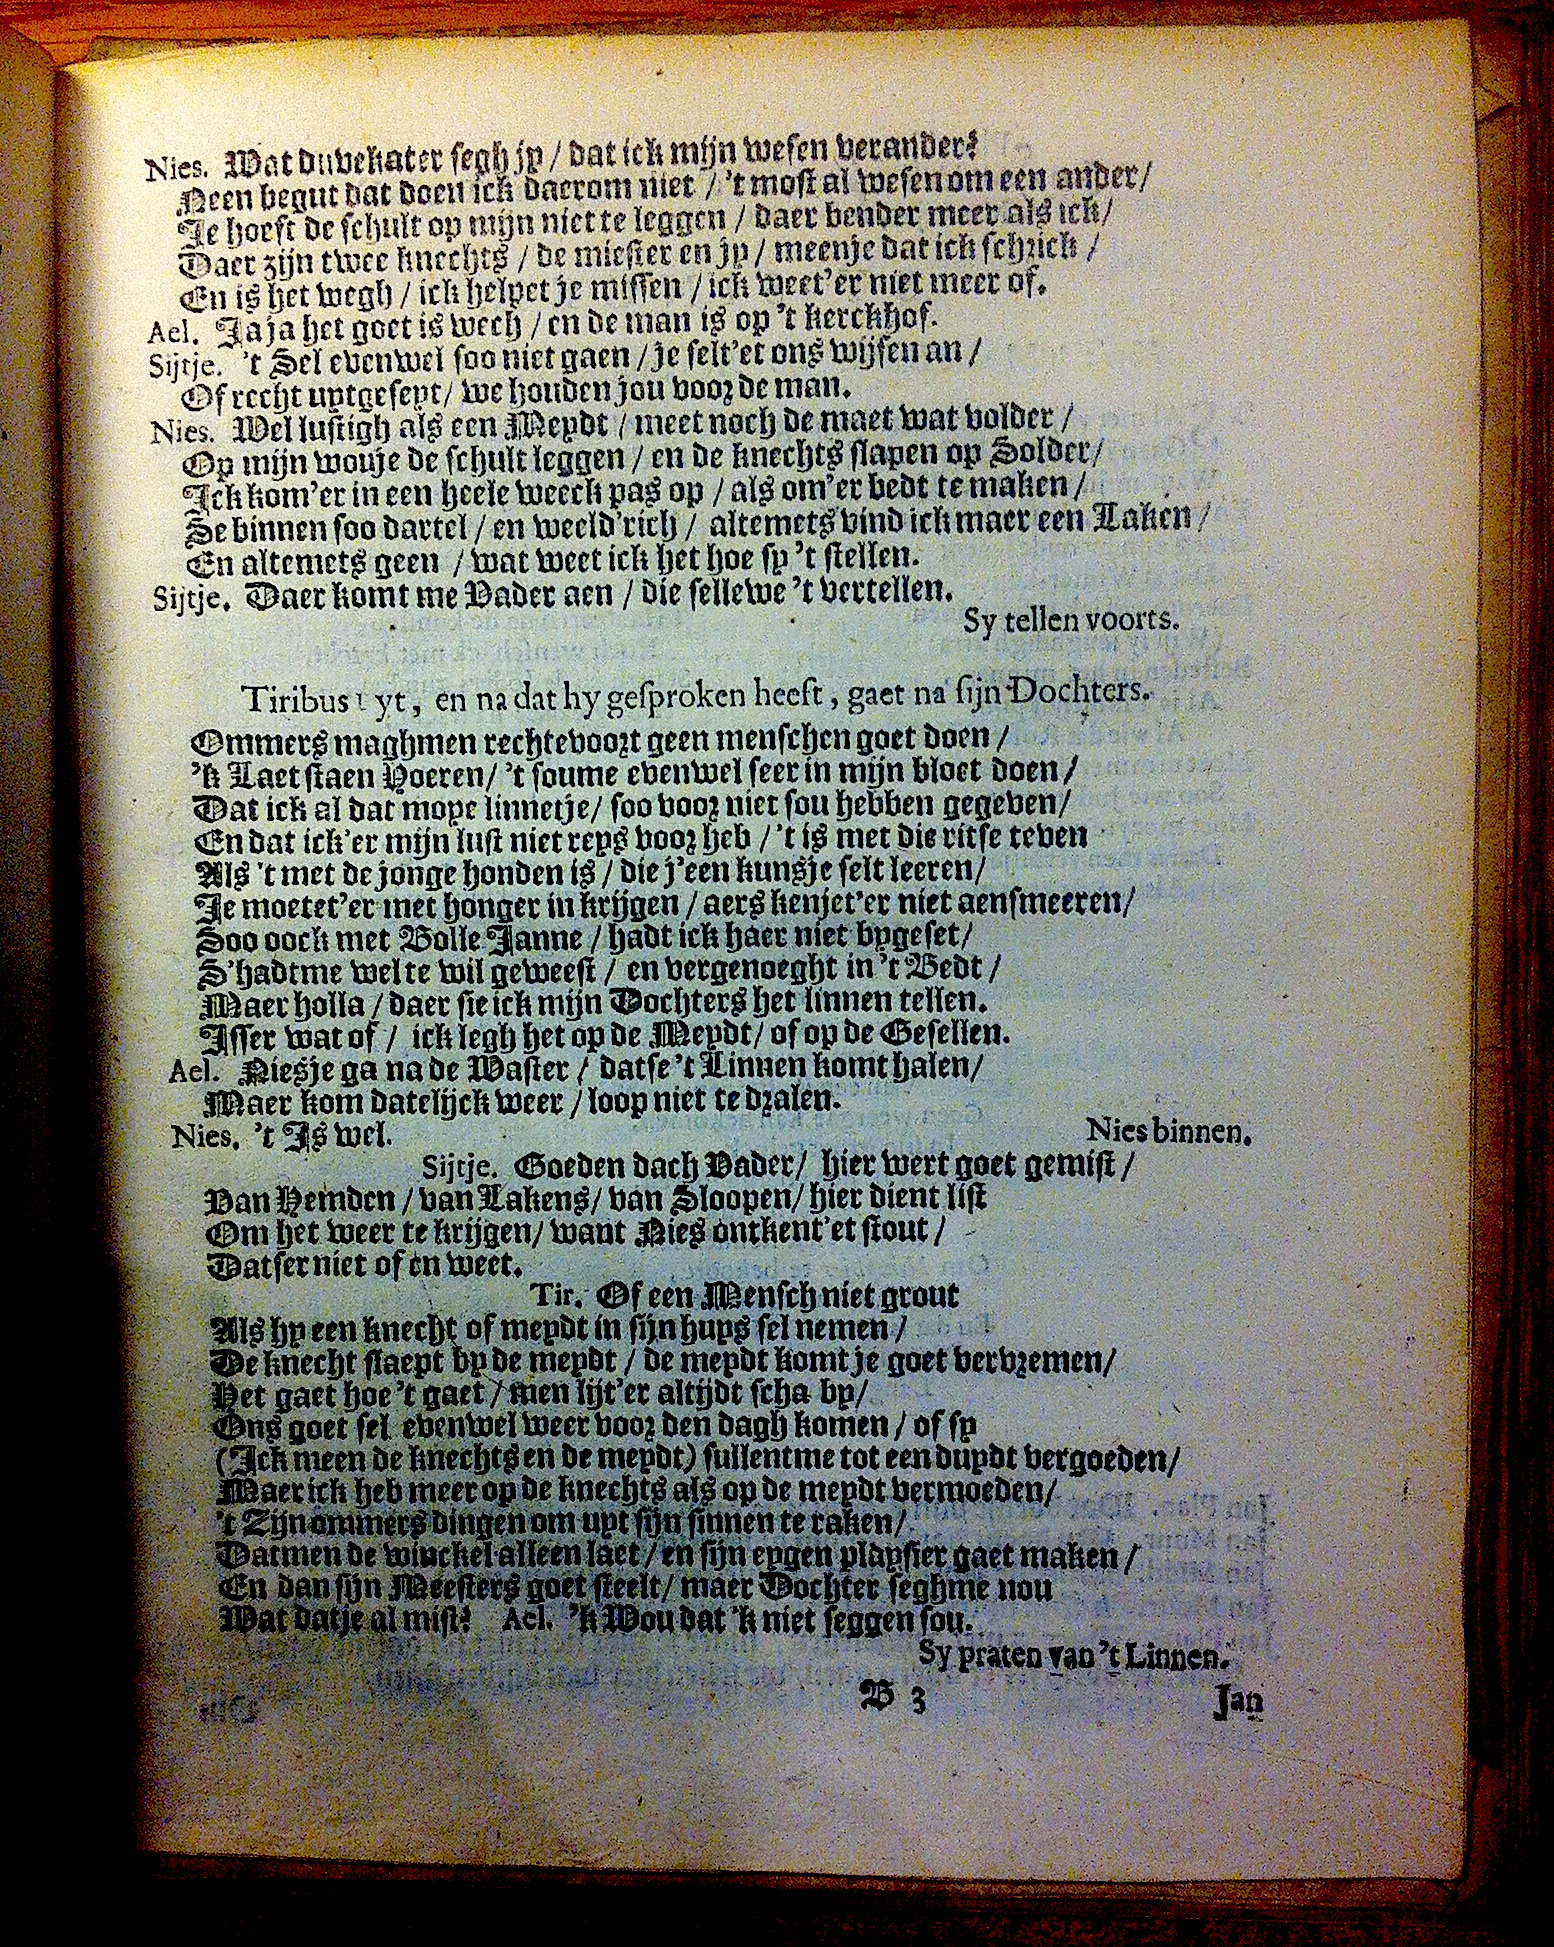 Nies. Wat duvekater segh jy / dat ick mijn wesen verander?
Neen begut dat doen ick daerom niet / 't most al wesen om een ander /
Je hoeft de schult op mijn niet te leggen / daer bender meer als ick /
Daer zijn twee knechts / de miester en jy / meenje dat ick schrick /
En is het wegh / ick helpet je missen / ick weet'er niet meer of.
Ael. Ja ja het goet is wech / en de man is op 't kerckhof.
Sijtje. 't Sel evenwel soo niet gaen / je selt'et ons wijsen an /
Of recht uytgeseyt / we houden jou voor de man.
Nies. Wel lustigh als een Meydt / meet noch de maet wat volder /
Op mijn wouje de schult leggen / en de knechts slapen op Solder /
Ick kom'er in een heele weeck pas op / als om'er bedt te maken /
Se binnen soo dartel / en weeld'rich / altemets vind ick maer een Laken /
En altemets geen / wat weet ick het hoe sy 't stellen.
Sijtje. Daer komt me Vader aen / die sellewe 't vertellen.
Sy tellen voorts.
Tiribus uyt, en na dat hy gesproken heeft, gaet na sijn Dochters.
Ommers maghmen rechtevoort geen menschen goet doen /
'k Laet staen Hoeren / 't soume evenwel seer in mijn bloet doen /
Dat ick al dat moye linnetje / soo voor niet sou hebben gegeven /
En dat ick'er mijn lust niet reys voor heb / 't is met die ritse teven
Als 't met de jonge honden is / die j'een kunsje selt leeren /
Je moetet'er met honger in krijgen / aers kenjet'er niet aensmeeren /
Soo oock met Bolle Janne / hadt ick haer niet bygeset /
S'hadtme wel te wil geweest / en vergenoeght in 't Bedt /
Maer holla / daer sie ick mijn Dochters het linnen tellen.
Isser wat of / ick legh het op de Meydt / of op de Gesellen.
Ael. Niesje ga na de Waster / datse 't Linnen komt halen /
Maer kom datelijck weer / loop niet te dralen.
Nies. 't Is wel. Nies binnen.
Sijtje. Goeden dach Vader / hier wert goet gemist /
Van Hemden / van Lakens / van Sloopen / hier dient list
Om het weer te krijgen / want Nies ontkent'et stout /
Datser niet of en weet.
Tir. Of een Mensch niet grout
Als hy een knecht of meydt in sijn huys sel nemen /
De knecht slaept by de meydt / de meydt komt je goet vervremen /
Het gaet hoe 't gaet / men lijt'er altijdt scha by /
Ons goet sel evenwel weer voor den dagh komen / of sy
(Ick meen de knechts en de meydt) sullentme tot een duydt vergoeden /
Maer ick heb meer op de knechts als op de meydt vermoeden /
't Zijn ommers dingen om uyt sijn sinnen te raken /
Datmen de winckel alleen laet / en sijn eygen playsier gaet maken /
En dan sijn Meesters goet steelt / maer Dochter seghme nou
Wat datje al mist? Ael. 'k Wou dat 'k niet seggen sou.
Sy praten van 't Linnen.
B 3 Jan